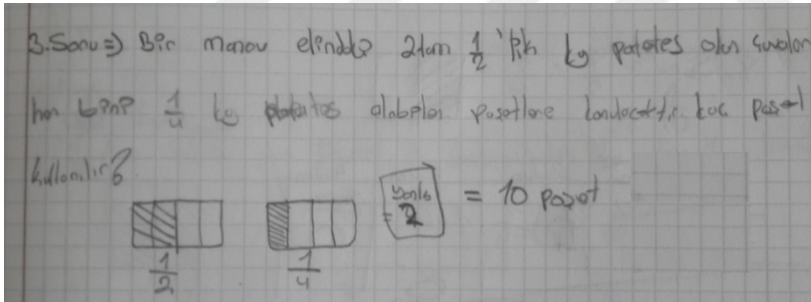 3.Soru => Bir manav elinde 2 tam 1/2 'lik kg patates olan çuvalları
her biri 1/4 kg patates alabilen poşetlere koyacaktır. kaç poşet
kullanılır?
= 2 = 10 poşet
1/2 1/4